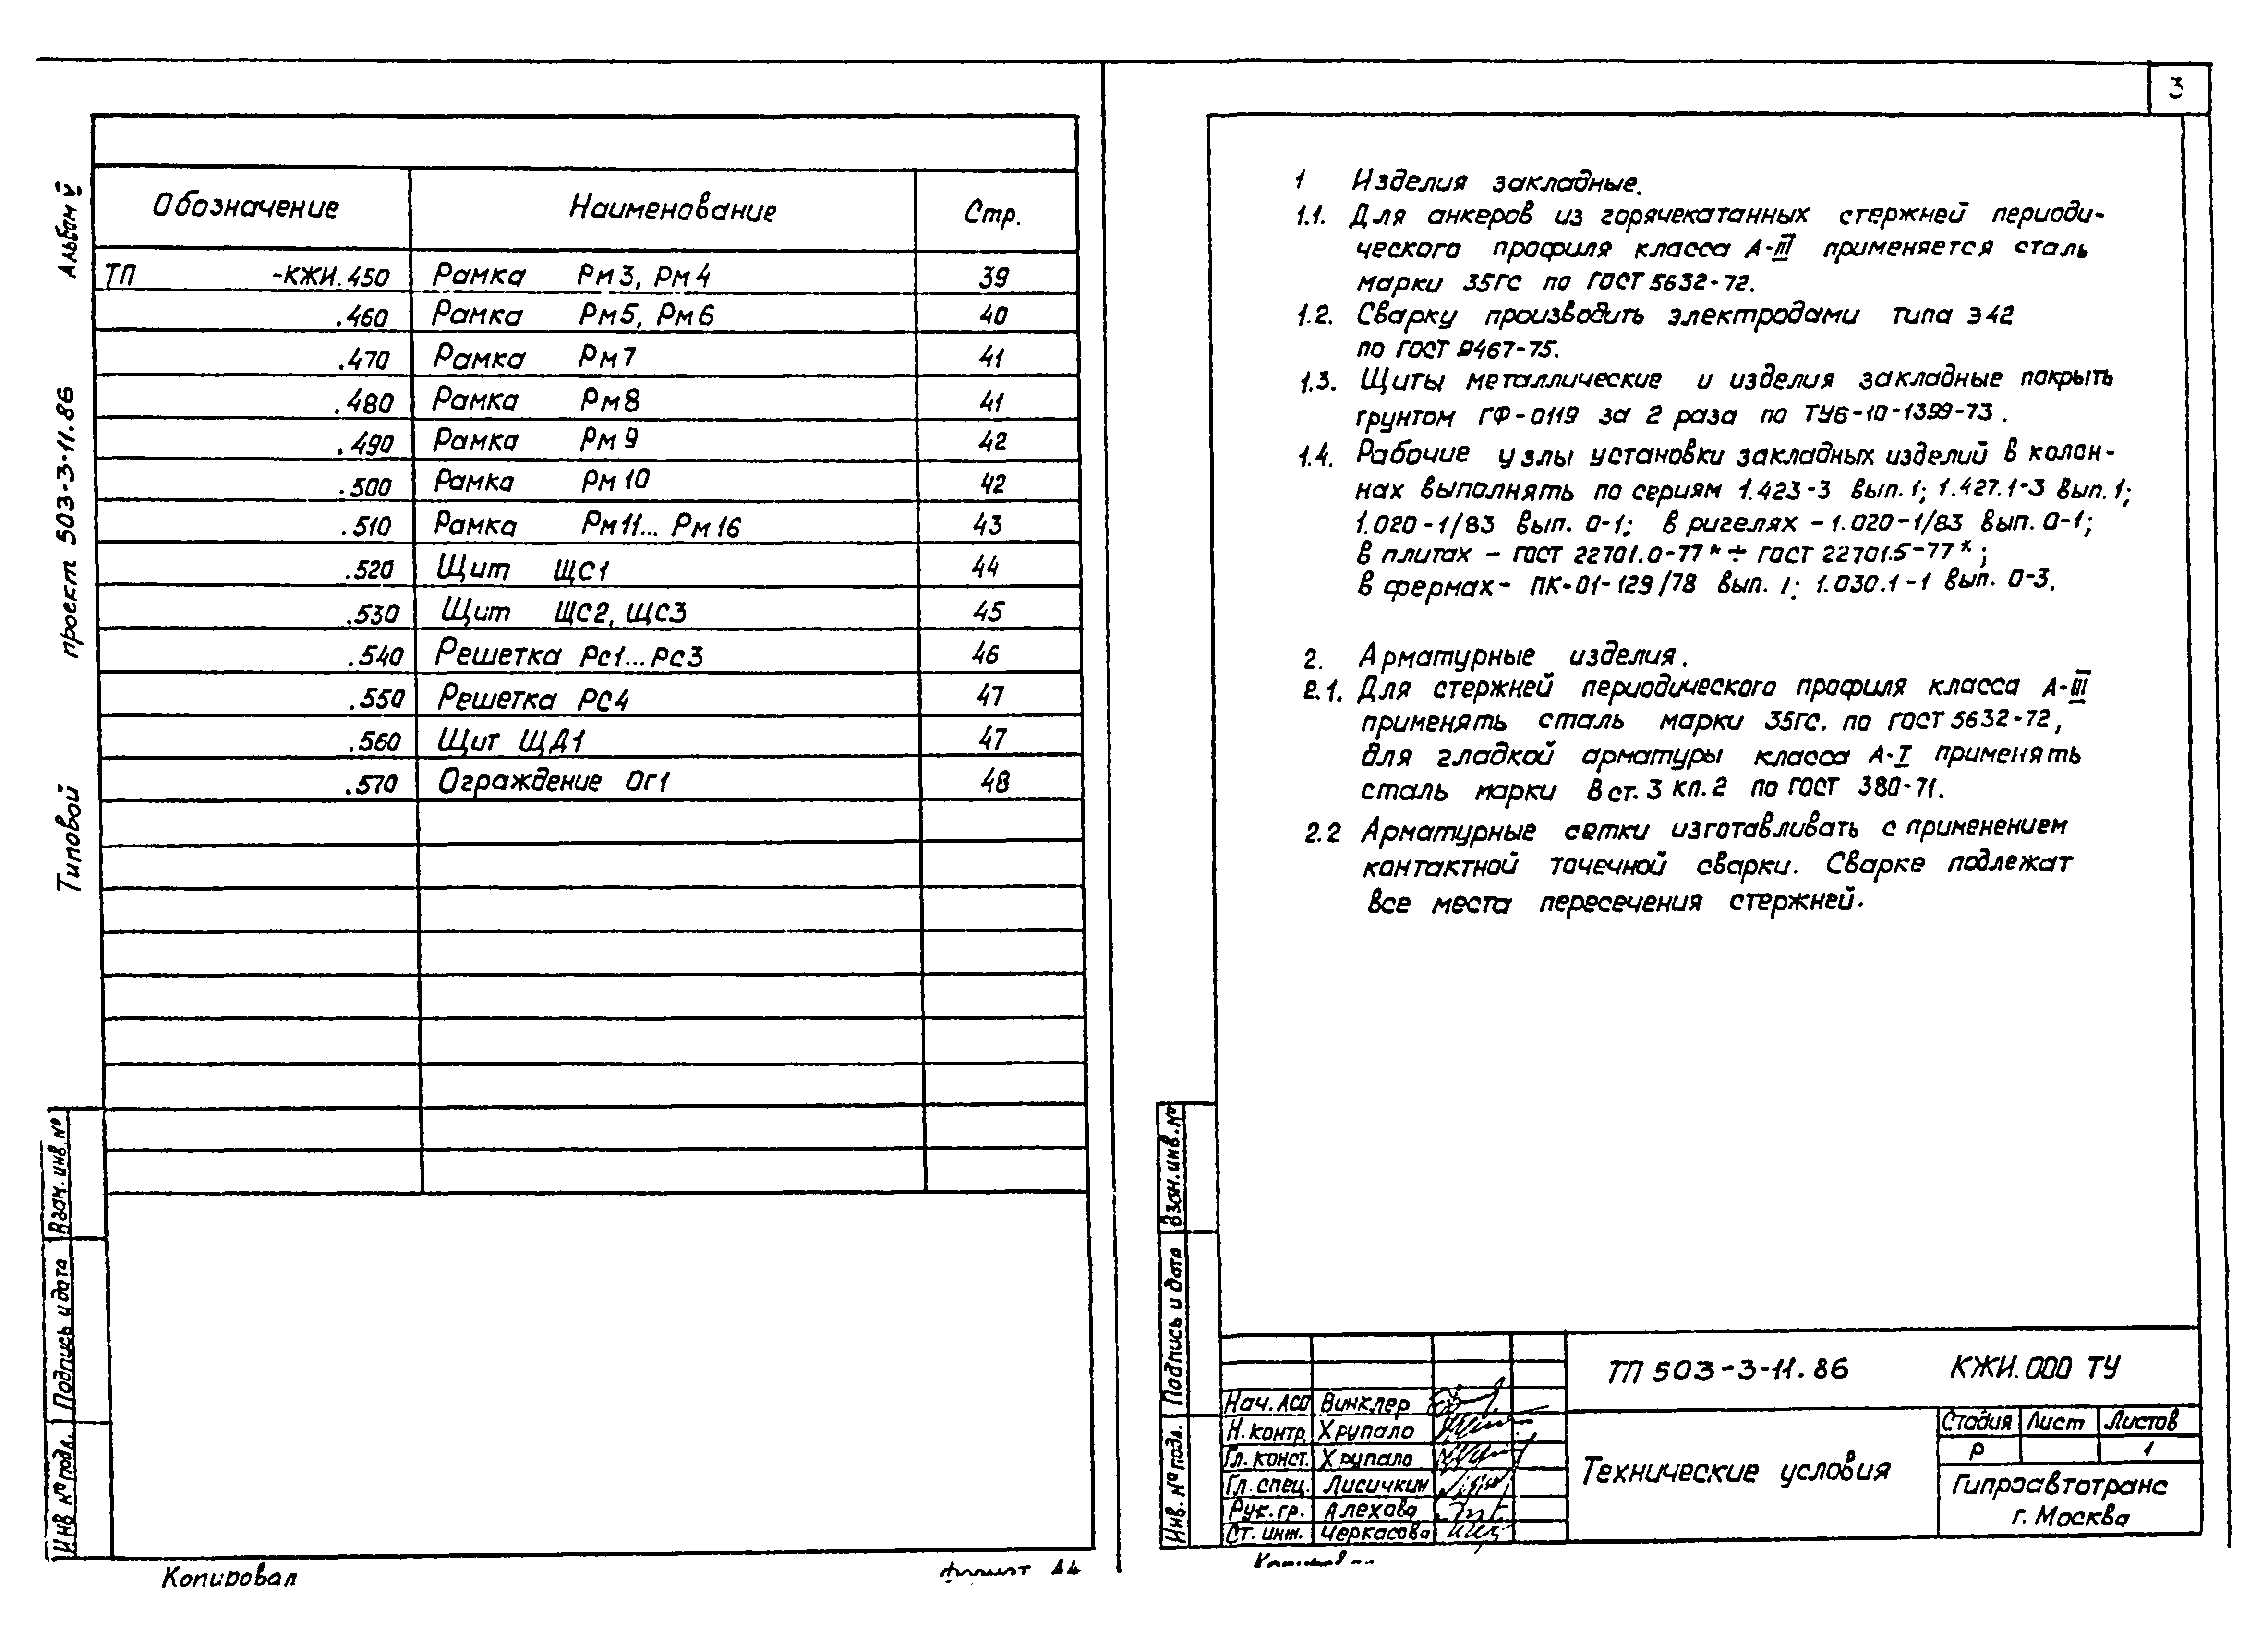 3
Альбом V
проект 503-3-11.86
Типовой
Обозначение Наименование Стр.
ТП -КЖИ.450 Рамка Рм3, Рм4 39
.460 Рамка Рм5, Рм6 40
.470 Рамка Рм7 41
.480 Рамка Рм8 41
.490 Рамка Рм9 42
.500 Рамка Рм10 42
.510 Рамка Рм11... Рм16 43
.520 Щит ЩС1 44
.530 Щит ЩС2, ЩС3 45
.540 Решетка Рс1...Рс3 46
.550 Решетка РС4 47
.560 Щит ЩД1 47
.570 Ограждение Ог1 48
Взам. инв. №
Подпись и дата
Инв № подл.
Копировал
Формат А4
1 Изделия закладные.
1.1. Для анкеров из горячекатанных стержней периоди-
ческого профиля класса А-III применяется сталь
марки 35ГС по ГОСТ 5632-72.
1.2. Сварку производить электродами типа Э42
по ГОСТ 9467-75.
1.3. Щиты металлические и изделия закладные покрыть
грунтом ГФ-0119 за 2 раза по ТУ6-10-1399-73.
1.4. Рабочие узлы установки закладных изделий в колон-
нах выполнять по сериям 1.423-3 вып.1; 1.427.1-3 вып.1;
1.020-1/83 вып. 0-1; в ригелях - 1.020-1/83 вып. 0-1;
в плитах - ГОСТ 22701.0-77* ÷ ГОСТ 22701.5-77*;
в фермах - ПК-01-129/78 вып. 1; 1.030.1-1 вып. 0-3.
2. Арматурные изделия.
2.1. Для стержней периодического профиля класса А-III
применять сталь марки 35ГС. по ГОСТ 5632-72,
для гладкой арматуры класса А-I применять
сталь марки Вст.3 кп.2 по ГОСТ 380-71.
2.2 Арматурные сетки изготавливать с применением
контактной точечной сварки. Сварке подлежат
все места пересечения стержней.
Взам. инв. №
Подпись и дата
Инв. № подл.
ТП 503-3-11.86 КЖИ.000 ТУ
Нач. АСО Винклер
Н. контр. Хрупало
Гл. конст. Хрупало
Гл. спец. Лисичкин
Рук. гр. Алехова
Ст. инж. Черкасова
Технические условия
Стадия Лист Листов
Р 1
Гипроавтотранс
г. Москва